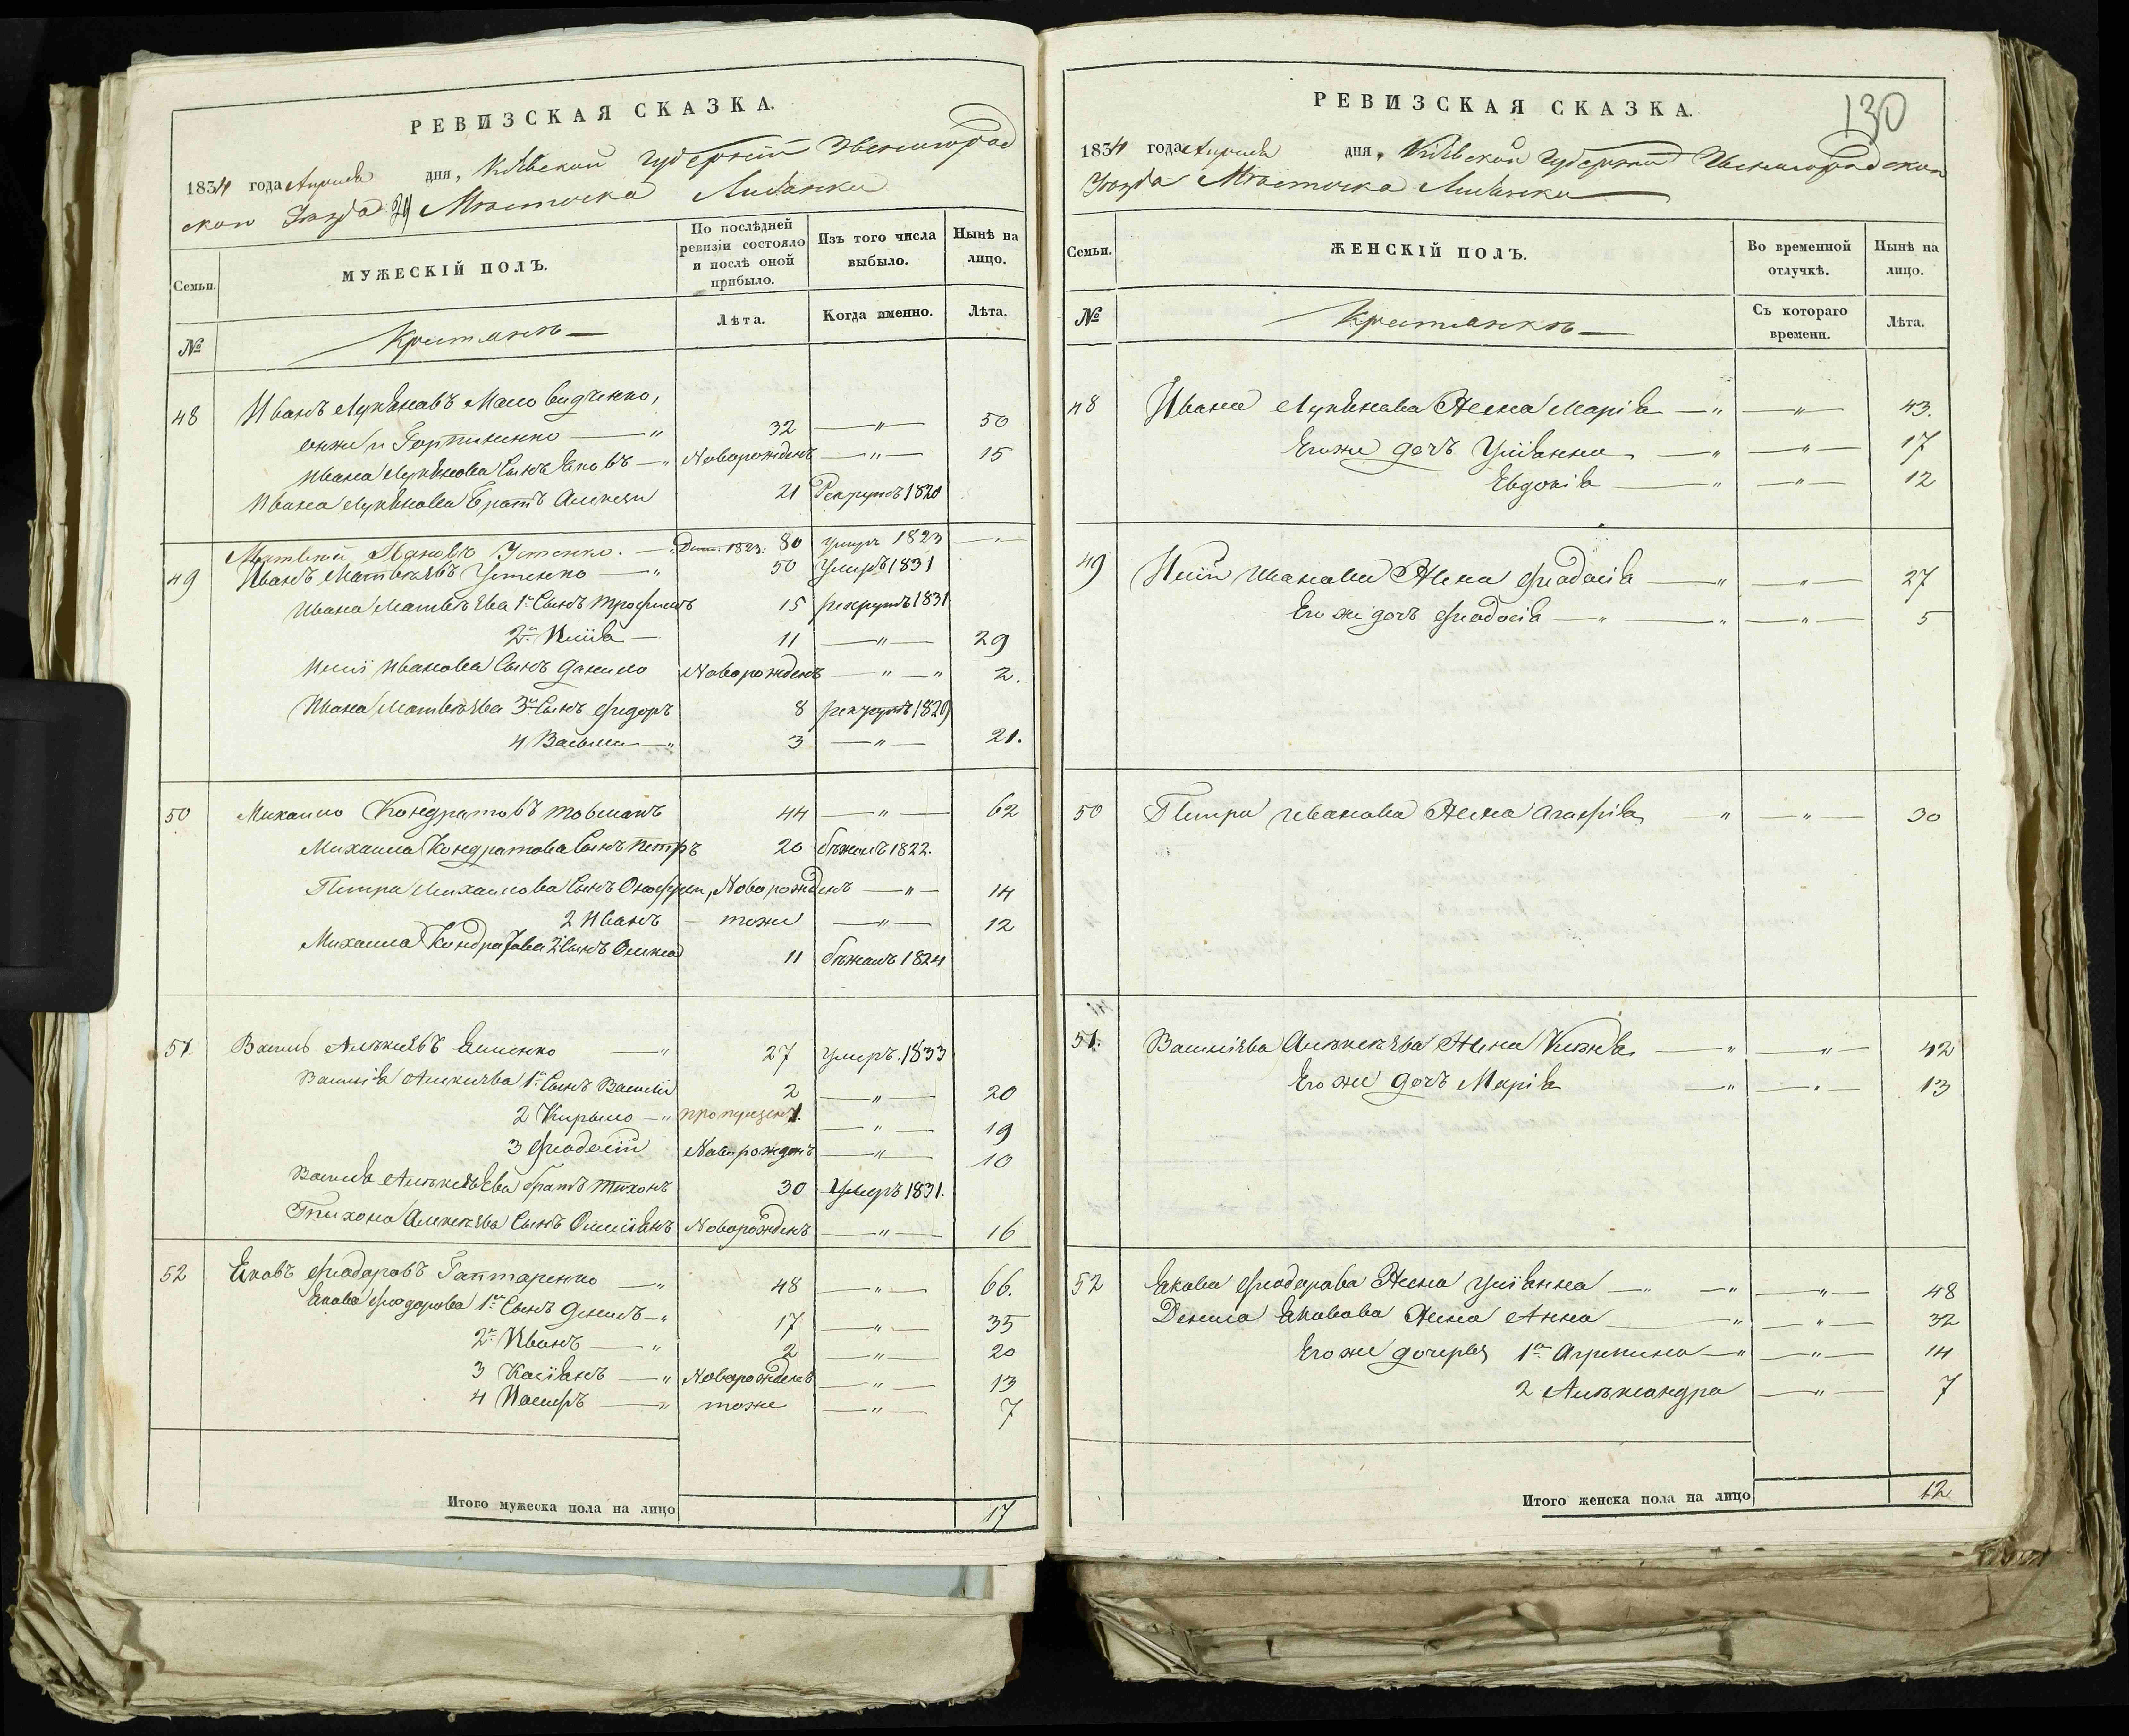 РЕВИЗСКАЯ СКАЗКА.
1834 года Апреля дня, Кіевской губерніи Звенигород
ской уезда Местечка Лисянки
Семьи.
МУЖЕСКІЙ ПОЛЪ.
По послѣдней ревизіи состояло и послѣ оной прибыло.
Изъ того числа выбыло.
Нынѣ на лицо.
№
Крестьянъ
Лѣта.
Когда именно.
Лѣта.
48 Иванъ Лукянавъ
онже и 32 — " — 50
Ивана Лукянова Сынъ Яковъ — " Новорожденъ — " — 15
Ивана Лукянова Братъ Алексеи 21 Рекрутъ 1820
Устенко. — 1823. 80 умеръ 1823 — " —
49 Иванъ Матвѣевъ Устенко — " 50 Умеръ 1831
Ивана Матвѣева 1й Сынъ Трофимъ 15 рекрутъ 1831
2й Илія — 11 — " — 29
Иліи Иванова Сынъ Данило Новорожденъ — " — " 2.
Ивана Матвѣева 3й Сынъ Федоръ 8 рекрутъ 1829
4 Василь — " 3 — " — 21.
50 Михаило Кондратовъ Товмачъ 44 — " — 62
Михаила Кондратова Сынъ Петръ 20 бѣжалъ 1822.
Петра Михаилова Сынъ Новорожденъ — " — 14
2 Иванъ — тоже — " — 12
Михаила Кондратова 2й Сынъ 11 бѣжалъ 1824
51. Василь — " 27 умеръ. 1833
1й Сынъ Василій 2 — " — 20
2 Кирыло — " пропущенъ. — " — 19
3 Феодосій Новорожденъ — " — 10
братъ Тихонъ 30 Умеръ 1831.
Тихона Алексѣева Сынъ Новорожденъ — " — 16
52 Яковъ Феодоровъ Гаптаренко — " 48 — " — 66.
Якова Феодорова 1й Сынъ Денисъ — " 17 — " — 35
2й Иванъ — " 2 — " — 20
3 Касіянъ — " Новорожденъ — " — 13
4 — " тоже — " — 7
Итого мужеска пола на лицо 17
130
РЕВИЗСКАЯ СКАЗКА.
1834 года Апреля дня, Кіевской губерніи Звенигородской
Уезда Местечка Лисянки
Семьи.
ЖЕНСКІЙ ПОЛЪ.
Во временной отлучкѣ.
Нынѣ на лицо.
№
Крестьянкъ
Съ котораго времени.
Лѣта.
48 Ивана Лукянова Жена Марія — " — " — 43.
Егоже дочъ Уліянна — " — " — 17
Евдокія — " — " — 12
49 Иліи Иванова Жена Феодосія — " — " — 27
Его же дочъ Феодосія — " — " — " — 5
50 Петра Иванова Жена Агафія " — " — 30
51. Алексѣева Жена — " — " — 42
Его же дочъ Марія — " — " — 13
52 Якова Феодорова Жена Уліянна — " — " — " — 48
Дениса Яковова Жена Анна — " — " — 32
Егоже дочеры 1я Агрепина — " — " — 14
2 Александра — " — 7
Итого женска пола на лицо 12